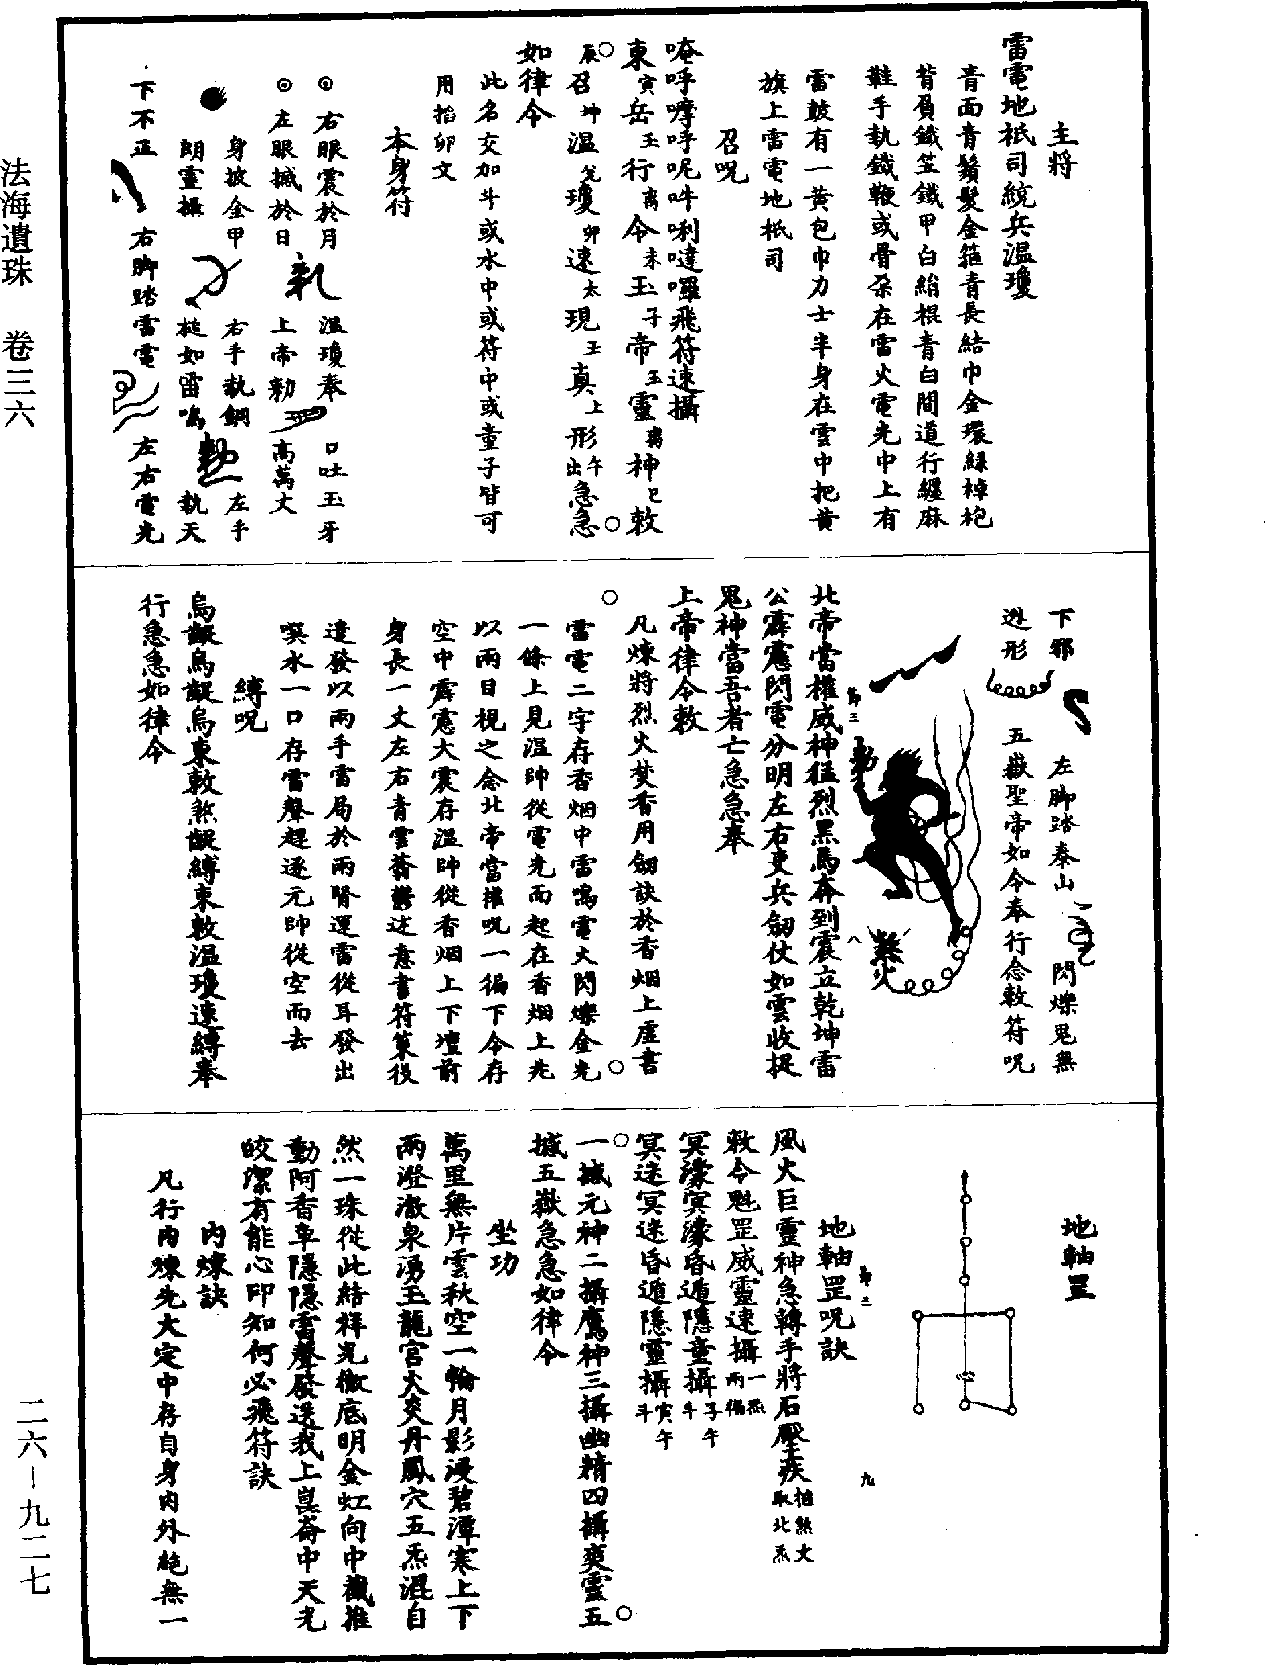 主將
雷電地祇司統兵溫瓊
青面青鬚髮金箍青長結巾金環綠棹袍
背負鐵笠鐵甲白綃棍青白間道行纏麻
鞋手執鐵鞭或骨朶在雷火電光中上有
雷鼓有一黃包巾力士半身在雲中把黃
旗上雷電地祇司
召呪
唵呼嚤呼呢吽唎噠囉飛符速攝
東寅岳玉行離令未玉子帝玉靈離神巳敕
辰召坤溫戈瓊卯速太現玉真上形午出急急
如律令
此名交加斗或水中或符中或童子皆可
用掐卯文
本身符
右眼震於月 溫瓊奉 口吐玉牙
左眼撼於日 上帝勑 高萬丈
身披金甲 右手執鋼 左手
朗靈攝 槌如雷鳴 執天
下不正 右脚踏雷電 左右電光
下邪 左脚踏泰山 閃爍鬼無
迯形 五嶽聖帝如令奉行念敕符呪
煞火
八
北帝當權威神猛烈黑馬奔到震立乾坤雷
公霹靂閃電分明左右吏兵劒仗如雲收捉
鬼神當吾者亡急急奉
上帝律令敕
凡煉將烈火焚香用劒訣於香烟上虛書
雷電二字存香烟中雷鳴電火閃爍金光
一條上見溫帥從電光而起在香烟上先
以兩目視之念北帝當權呪一徧下令存
空中霹靂大震存溫帥從香烟上下壇前
身長一丈左右青雲蓊鬱迬意書符策役
遣發以兩手雷局於兩腎運雷從耳發出
噀水一口存雷聲趕逐元帥從空而去
縛呪
烏齪烏齪烏東敕煞齪縛東敕溫瓊速縛奉
行急急如律令
地軸罡
心
九
地軸罡呪訣
風火巨靈神急轉手將石壓疾掐煞文取北炁
敕令魁罡威靈速攝一炁兩徧
冥濛冥濛昏遁隱童攝子午斗
冥迷冥迷昏遁隱靈攝寅午斗
一撼元神二攝鷹神三攝幽精四攝爽靈五
撼五嶽急急如律令
坐功
萬里無片雲秋空一輪月影浸碧潭寒上下
兩澄澈泉湧玉龍宮火奕丹鳳穴五炁混自
然一珠從此結祥光徹底明金虹向中櫼推
動阿香車隱隱雷聲發送我上崑崙中天光
皎潔有能心印知何必飛符訣
內煉訣
凡行內煉先大定中存自身內外絶無一
法海遺珠 卷三六
二六－九二七